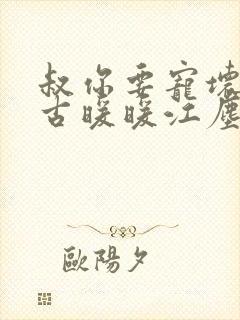 叔你要寵壞
古暖暖江塵
歐陽夕